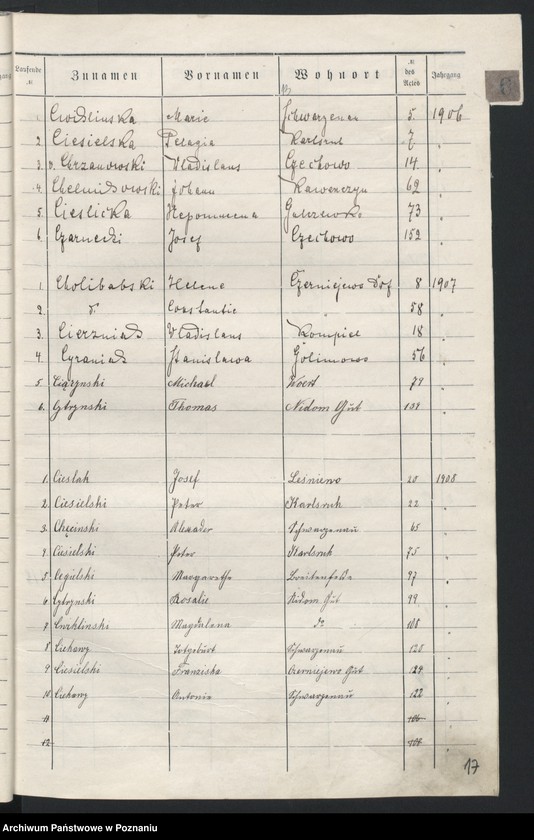 Laufende № Zunamen Vornamen Wohnort № des Actes Jahrgang
1. Cwidlinska Marie Schwarzenau 5. 1906
2 Ciesielska Pelagia Karlsruh 7 "
3. v. Chrzanowski Vladislaus Czechowo 14. "
4. Chelmidowski Johann 62 "
5. Cieslicka Nepomucena 73 "
6 Czarnecki Josef Czechowo 152 "
1. Cholibabski Helene Czerniejewo Dof 8 1907
2. d° Constantin 58 "
3. Cierzniak Vladislaus 18 "
4. Cyraniak Stanislawa Golimowo 56 "
5 Ciązynski Michael 79 "
6. Cytrynski Thomas Nidom Gut "
1. Cieslak Josef Lesniewo 20 1908
2. Ciesielski Peter Karlsruh 22 "
3. Chęcinski Alexander Schwarzenau 65 "
4. Ciesielski Peter Karlsruh 75 "
5 Cegielski Margarethe Breitenfelde 97 "
6 Cytrynski Rosalie Nidom Gut 99 "
7 Magdalena d° 108 "
8 Cichowy Totgeburt Schwarzenau 120 "
9 Ciesielski Franziska Czerniejewo Gut 124 "
10. Cichowy Antonie Schwarzenau 122 "
11 106 "
12 108 "
17
Archiwum Państwowe w Poznaniu